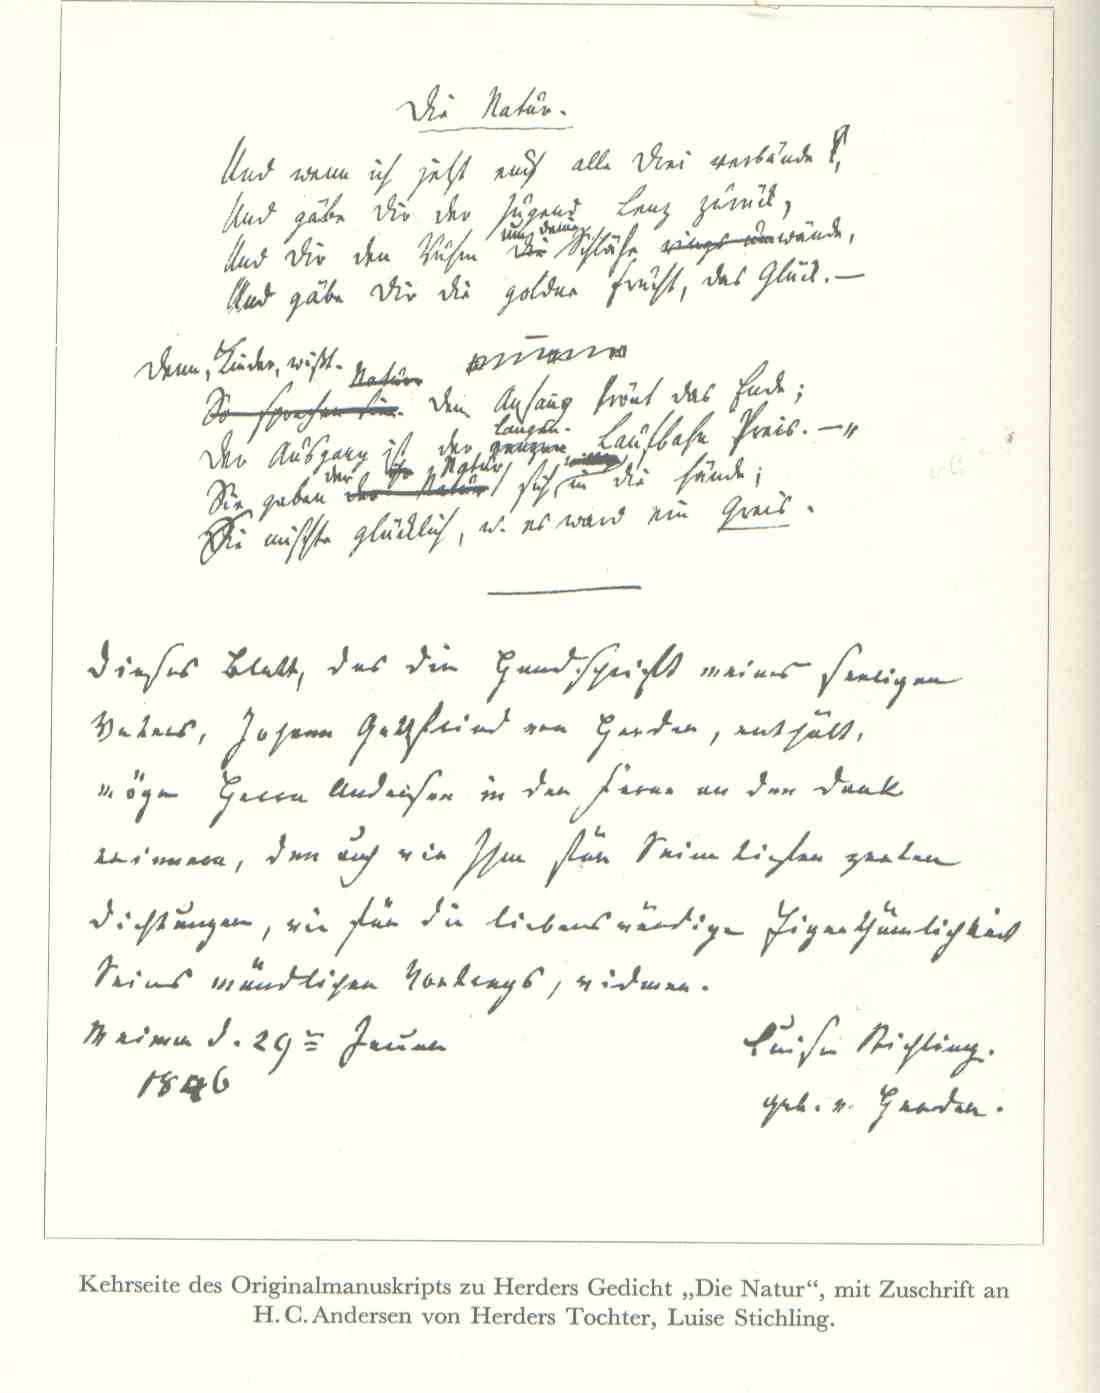 Die Natur.
Und wenn ich jetzt euch alle Drei verbände,
Und gäbe Dir der Jugend Lenz zurück,
um deine
Und Dir den Ruhm die Schläfe rings umwände,
Und gäbe Dir die goldne Frucht, das Glück. —
Denn, Kinder, wißt.
Natur
So sprachen sie. Den Anfang krönt das Ende;
langen
Der Ausgang ist der ganzen Laufbahn Preis. — "
der Natur
Sie gaben der Natur sich in die Hände;
Sie mischte glücklich, u. es ward ein Greis.
Dieses Blatt, das die Handschrift meines seeligen
Vaters, Johann Gottfried von Herder, enthält,
möge Herrn Andersen in der Ferne an den Dank
erinnern, den auch wir Ihm für Seine zarten
Dichtungen, wie für die liebenswürdige Eigenthümlichkeit
Seines mündlichen Vortrags, widmen.
Weimar d. 29 Januar
1846
Luise Stichling.
geb. v. Herder.
Kehrseite des Originalmanuskripts zu Herders Gedicht „Die Natur“, mit Zuschrift an
H. C. Andersen von Herders Tochter, Luise Stichling.